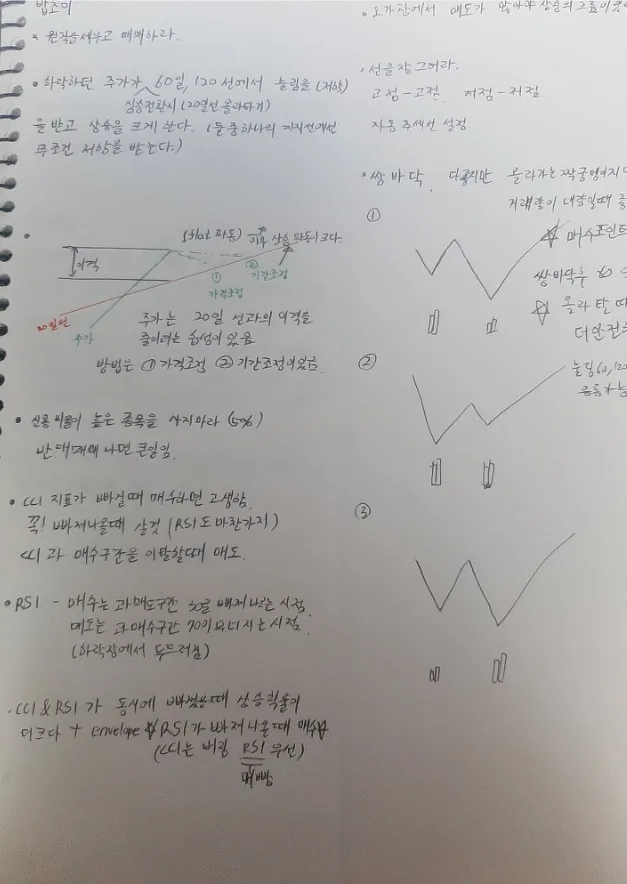 * 원칙을 세우고 매매하라.
• 하락하던 주가가 60일, 120선에서 눌림을 (저항)
상승전환시 (20일선 올라타기)
을 받고 상승을 크게 한다. (둘중 하나의 지지선에서
무조건 저항을 받는다.)
(flat 파동) → 이후 상승 파동이 크다.
이격
① 가격조정
② 기간조정
20일선
주가
주가는 20일 선과의 이격을
줄이려는 습성이 있음
방법은 ① 가격조정 ② 기간조정이 있음.
• 신용비율이 높은 종목을 사지마라 (5%)
반대매매 나면 큰일임.
• CCI 지표가 빠질때 매수하면 고생함.
꼭! 빠져나올때 살것 (RSI도 마찬가지)
CCI 과매수구간을 이탈할때 매도.
• RSI - 매수는 과매도구간 30을 빠져나오는 시점.
매도는 과매수구간 70이 무너지는 시점.
(하락장에서 두드러짐)
• CCI & RSI가 동시에 빠졌을때 상승확률이
더크다 + envelope ☆ RSI가 빠져나올때 매수
(CCI는 버림 RSI 우선)
• 오가장에서 매도가 많아야 상승의
• 선을 잘 그어라.
고점-고점 저점-저점
자동추세선 설정
• 쌍바닥. 다 좋지만 올라가는
거래량이 내량일때
①
☆ 매수포인트
쌍바닥후 60
☆ 올라탈때
더 안전
②
눌림 60, 120
③